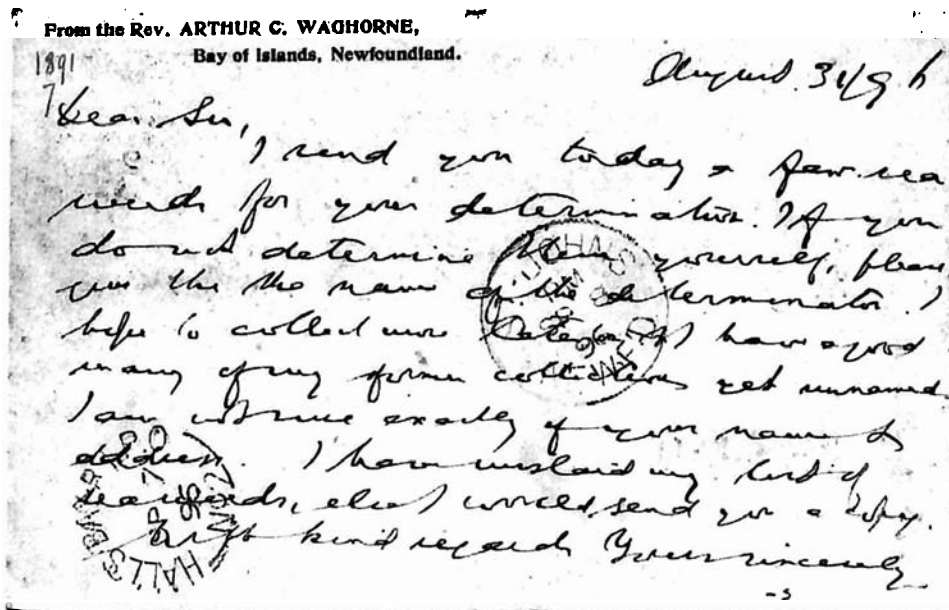 From the Rev. ARTHUR C. WAGHORNE,
Bay of Islands, Newfoundland.
1891
August 31/96
Dear Sir,
I send you today a few sea
weeds for your determination. If you
do not determine them yourself, please
give the the name of the determinator. I
hope to collect more later. I have a good
many of my former collections yet unnamed.
I am not sure exactly of your name &
address. I have mislaid my list of
seaweeds, else I would send you a copy.
With kind regards Yours sincerely
HALL'S BAY